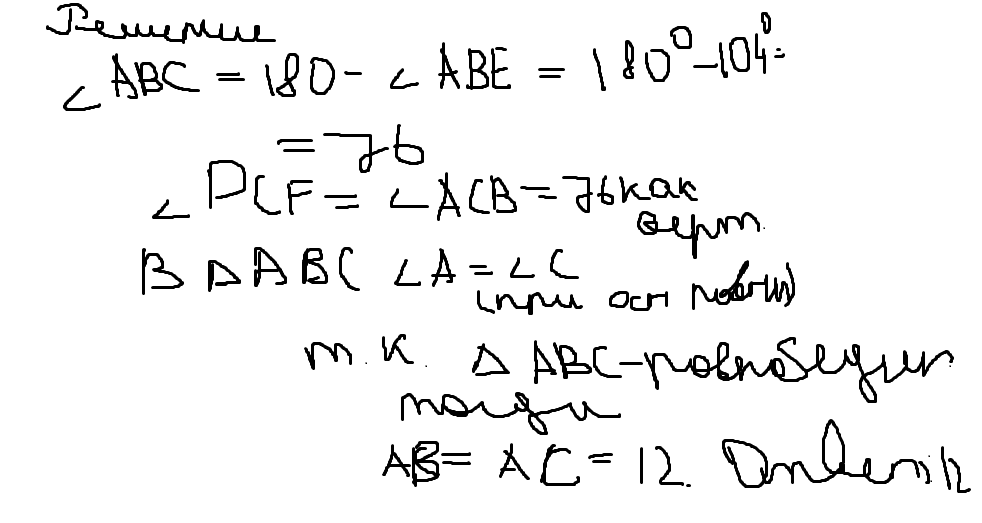 Решение
∠ ABC = 180 - ∠ ABE = 180⁰ - 104⁰ =
= 76
∠ DCF = ∠ ACB = 76 как
верт.
В Δ ABC ∠A = ∠C
(при осн равн)
т.к. Δ ABC - равнобедрен
тогда
AB = AC = 12. Ответ 12